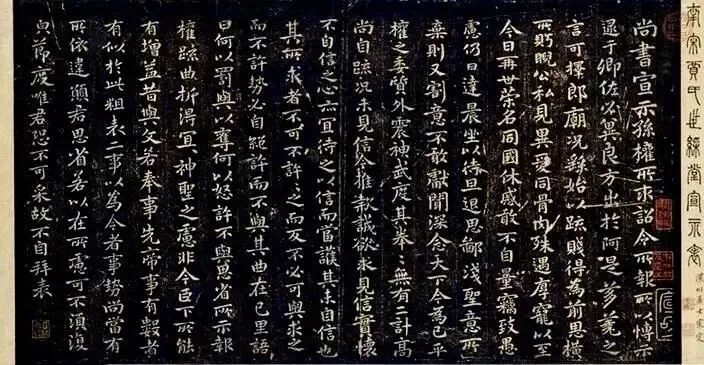 南宋賈氏世綵堂宣示表
尚書宣示孫權所求詔令所報所以博示
逮于卿佐必冀良方出於阿是芻蕘之
言可擇郎廟況繇始以疏賤得為前恩橫
所眄睨公私見異愛同骨肉殊遇厚寵以至
今日再世榮名同國休慼敢不自量竊致愚
慮仍日達晨坐以待旦退思鄙淺聖意所
棄則又割意不敢獻聞深念天下今為已平
權之委質外震神武度其拳〻無有二計高
尚自疏況未見信今推款誠欲求見信實懷
不自信之心亦宜待之以信而當護其未自信也
其所求者不可不許〻之而反不必可與求之
而不許勢必自絕許而不與其曲在己里語
曰何以罰與以奪何以怒許不與思省所示報
權疏曲折得宜〻神聖之慮非今臣下所能
有增益昔與文若奉事先帝事有數者
有似於此粗表二事以為今者事勢尚當有
所依違願君思省若以在所慮可不須復
貞節度唯君恐不可采故不自拜表